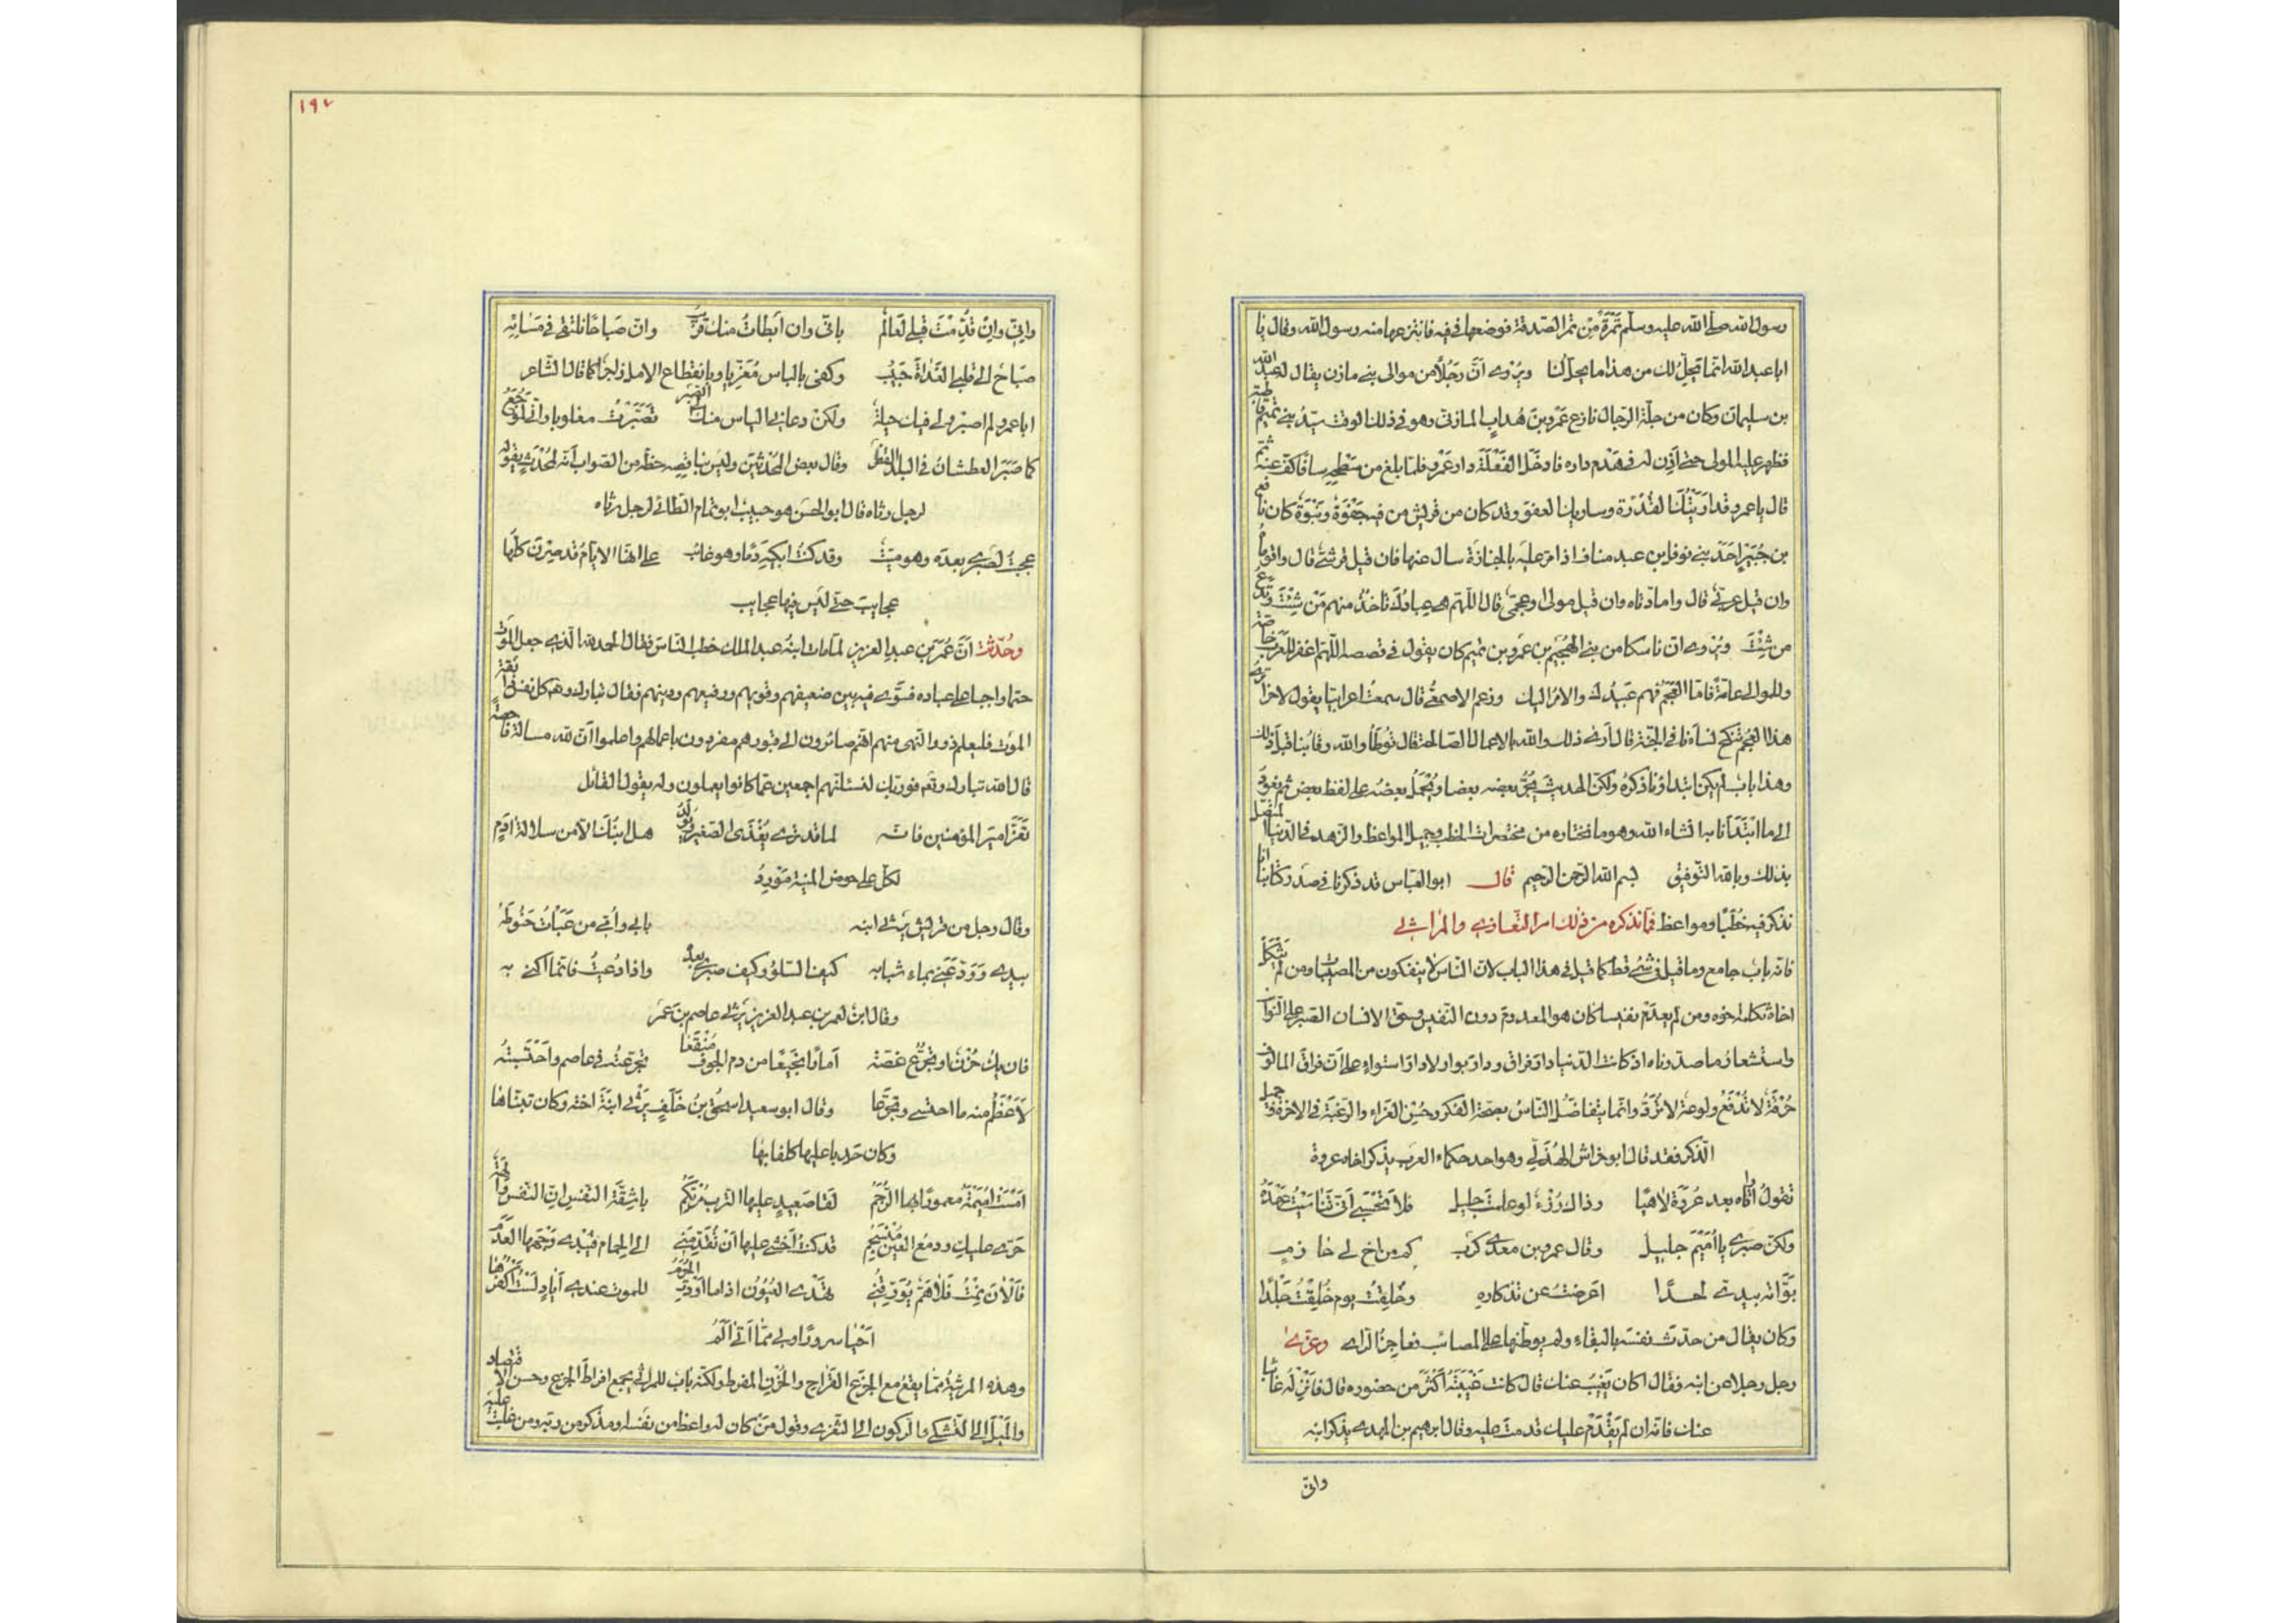 رسول الله صلى الله عليه وسلم تَمْرَةً مِن تمر الصدقة فوضعها في فيه فانتزعها منه رسول الله وقال يا
ابا عبد الله انما يحِلّ لك من هذا ما يحل لنا ويُروى انّ رجُلاً من موالى بنى مازن يقال له عبد الله
بن سليمان وكان من جلّة الرجال نازع عَمْرو بنَ هُدابٍ المازنىّ وهو فى ذلك الوقت سيّدُ بنى تميم قاطبة
فظهر عليه المولى حتى أذِن له فى هَدْم داره فادخَلَ الفَعَلَةَ دار عَمْرو فلما بلغ من سَطحِه سافًا كفّ عنه ثم
قال يا عمرو قد اَرَيْتُكَ القُدْرَة وساريك العفوَ وقد كان من قريش من فيه جَفْوَةٌ ونَبْوَةٌ كان نافع
بن جُبَيْرٍ اَحَدُ بنى نوفل بن عبد مناف اذا مرّ عليه بالجنازة سال عنها فان قيل قرشىّ قال واقوماه
وان قيل عربىّ قال وامادّتاه وان قيل مولى اوعجمى قال اللّهم هم عبادُك تاخذُ منهم مَنْ شِئْتَ وتدع
من شِئْتَ ويُروى ان ناسكا من بنى الهُجَيْمِ بن عَمرو بن تميم كان يقول فى قصصه اللّهم اغفر للعَرَبِ خاصّة
وللموالى عامّةً فامّا العَجَمُ فهم عَبيدُك والامرُ اليك وزعم الاصمعىُّ قال سمعتُ اعرابيا يقول لاخر اترى
هذه العَجَم تَنكح نساءَنا فى الجنّة قال اَرى ذلك والله بالاعمال الصالحة قال تُوطَأُ والله رقابُنا قبل ذلك
وهذا بابٌ لم يكن ابتداؤنا ذكرُه ولكنّ الحديث يَجُرُّ بعضه بعضا ويُحْمَلُ بعضُه على لفظ بعض ثم نعود
الى ما ابتَدَأْنا به انشاء الله وهو ما نختاره من مختصرات الخطب وجميل المواعظ والزهد فى الدنيا المتصل
بذلك وبالله التوفيق بسم الله الرحمن الرحيم قال ابو العباس قد ذكرنا فى صدر كتابنا انا
نذكر فيه خُطَبًا ومواعظ فما نذكره من ذلك امر التعازى والمراثى
فانه بابٌ جامع وما قيل فى شئ قط كما قيل فى هذا الباب لانّ الناسَ لا ينفكون من المصيبات ومن لم يثكل
اخاهُ ثكله اخوه ومن لم يعدَم نفيسا كان هو المعدومَ دون النفيس وحقّ الانسان الصبر على النوائب
واستشعارُ ما صدّرناه اذ كانت الدنيا دار فراق ودارَ بوار لا دارَ استواءٍ على أنّ فراقَ المالوف
حُرْقَةٌ لا تُدْفَعُ ولوعة لا تُرَدُّ وانما يتفاضَلُ الناسُ بصحة الفكر وحُسْنِ العَزاء والرغبة فى الاخرة وجميل
الذكر فقد قال ابو خراش الهُذَلى وهو احد حكماء العرب يذكر اخاه عروة
تقولُ أَراه بعد عُروَة لاهيًا وذاك رُزْءٌ لو علمتَ جليلُ فلا تَحْسَبِى أنّى تناسَيْتُ عَهْدَهُ
ولكنّ صبرى يا أُمَيْمَ جليلُ وقال عمرو بن معدى كرب كم من اخ لى حازم
بَوَّأْتُه بيدىّ لحدًا اعرضتُ عن تذكارهِ وخُلِقْتُ يوم خُلِقْتُ جَلْدًا
وكان يقال من حدّث نفسَه بالبقاء ولم يوطّنها على المصائب فعاجِزُ الراى وعزّى
رجل رجلا عن ابنه فقال اكان يَغيبُ عنك قال كانت غَيْبَتُهُ أكثَرَ من حضوره قال فاَنْزِلْهُ غائبا
عنك فانه ان لم يَقْدَمْ عليك قدمتَ عليه وقال ابرهيم بن المهدى يذكر ابنه
وانى
١٩٧
وانّى وانْ قُدِّمْتَ قَبلى لَعالِمٌ بانّى وان اَبطاتُ منك قريبُ وان صَباحًا نلتقى فى مَسَائِه
صَباحٌ الى قلبى الغداةَ حَبيبُ وكفى بالياس مُعَزّيا وبانقطاع الامل زاجرًا كما قال الشاعر
ابا عمرو لم اصبر ولى فيك حيلةٌ ولكنْ دعانى الياس منك الى الصّبر تَصَبَّرْتُ مغلوبا وانّى لموجَعٌ
كما صَبَرَ العطشانُ فى البلد القفر وقال بعض المحدثين وليس بناقصِه حظه من الصواب أنّه مُحْدَثٌ يقوله
لرجل رثاه قال ابو الحسن هو حبيبٌ ابو تمام الطائى لرجل رثاه
عجبتُ لصبرى بعده وهو ميتٌ وقد كنتُ ابكيهِ دمًا وهو غائبُ على انها الايّامُ قد صِرنَ كلّها
عجايبَ حتى لَيس فيها عجايبُ
وحُدِّثتُ أنَّ عُمَرَ بن عبدِ العزيز لما مات ابنُه عبد الملك خطب الناسَ فقال الحمد لله الذى جعل الموتَ
حتما واجبا على عباده فسوّى فيه بين ضعيفهم وقويهم ورفيعهم ودنيهم فقال تبارك وتعالى كل نفس ذائقة
الموت فليعلم ذووا النهى منهم انّهم صائرون الى قبورهم مفردون باعمالهم واعلموا أنّ لله مسالة فاحصة
قال الله تبارك وتعالى فوربّك لنسئلنّهم اجمعين عما كانوا يعملون وله يقول القائل
تَعَزَّ اميرَ المؤمنين فانّه لما قد ترى يُغْذَى الصغيرُ ويُولَدُ هل ابنُكَ الّا من سلالةِ ادمٍ
لكلٍّ على حوض المنيّة مَوْرِدُ
وقال رجل من قريش يرثى ابنه بابى وأُمّى من عَبَأتُ حَنُوطَهُ
بيدى وَوَدَّعَنى بماء شبابه كيف السُلوُّ وكيف صبرى بعده واذا دُعيتُ فانّما اُكنى به
وقال ابنٌ لعمر بن عبد العزيز يرثى عاصم بنَ عمَر
فان يكُ حُزنٌ او تجرُّعُ غصّةٍ أمارَا نَجيعًا من دم الجوف مُنْقَعَا تجرّعتُه فى عاصم واحْتَسَيتُه
لَأعْظَمُ منه ما احتسى وتجرّعا وقال ابو سعيد اسحق بنُ خَلَفٍ يرثى ابنَةَ اخته وكان تبنّاها
وكان حَدِبا عليها كلفا بها
اَمْسَتْ اُمَيْمَةُ معمورًا بها الرَّجَمُ لَقَا صَعِيدٍ عليها الترب مُرْتَكِمُ يا شِقّةَ النفس انّ النفسَ والهةٌ
حَرّى عليكِ ودمعُ العَيْن مُنْسَجِمُ قد كنتُ أخشى عليها أن تُقَدِّمَنى الى الحمام فيُبْدى وَجْهَها العَدَمُ
فالْآنَ نِمْتُ فَلا هَمٌّ يُؤَرِّقُنى تهْدَى العُيُونُ اذا ما اَوْدَتِ الحُرَمُ للموت عندى أيادٍ لستُ اَكفُرُها
اَحْيا سرورًا وبى ممّا أتى أَلَمُ
وهذه المرثيةُ مما يقعُ مع الجزع القراح والحُزْنِ المفرط ولكنّه بابٌ للمراثى يجمع افراطَ الجزع وحسن الاقتصاد
والمَيْلَ الى التشكى والركون الى التعزى وقول من كان له واعظ من نفسه او مذكر من ربه ومن غلبت عليه